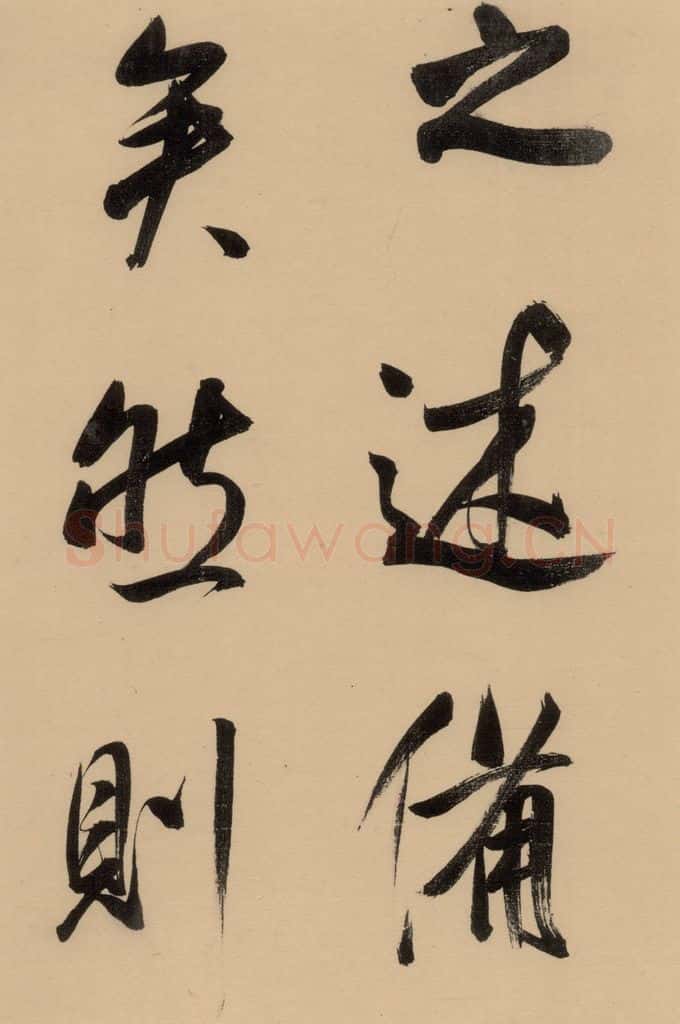 之述備
矣然則
Shufawang.CN